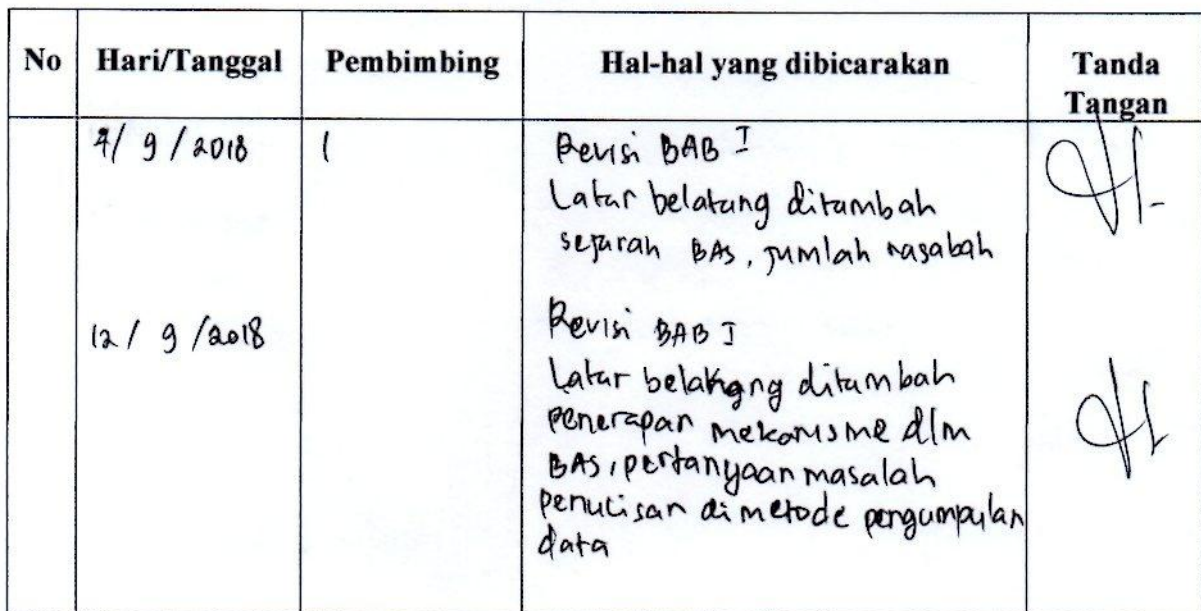 No Hari/Tanggal Pembimbing Hal-hal yang dibicarakan Tanda Tangan
7/ 9 / 2018 1 Revisi BAB I
Latar belakang ditambah
sejarah BAS, jumlah nasabah
12 / 9 /2018 Revisi BAB I
Latar belakang ditambah
penerapan mekanisme dlm
BAS, pertanyaan masalah
penulisan di metode pengumpulan
data